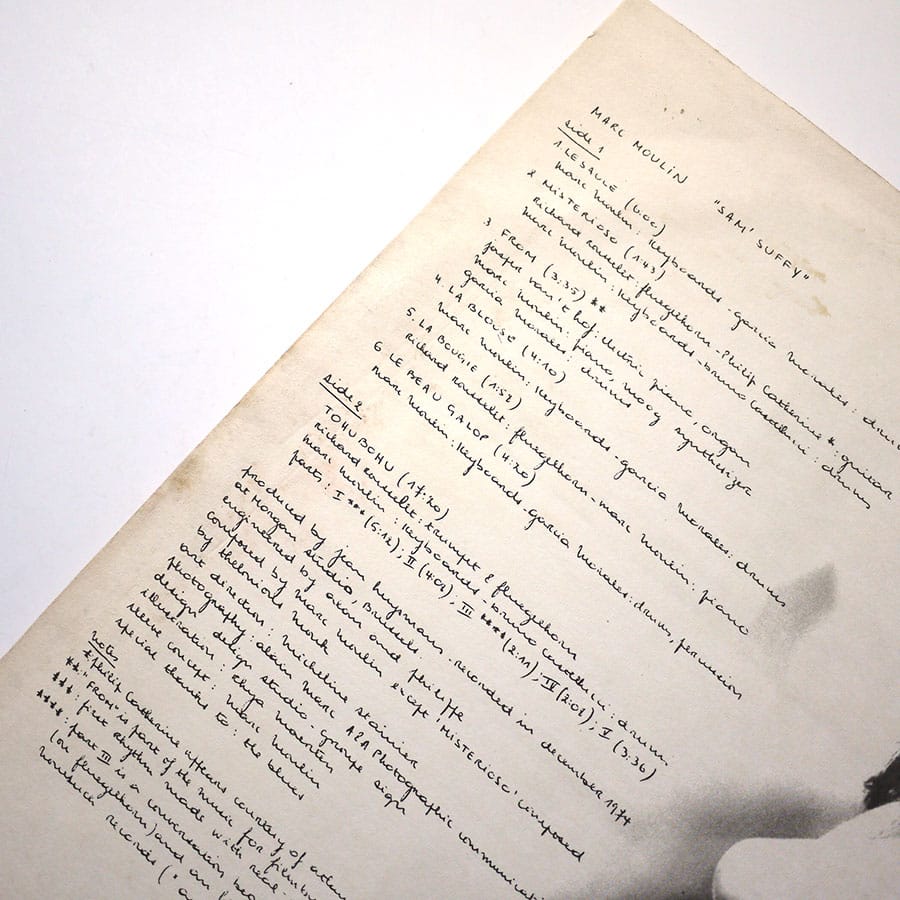 MARC MOULIN "SAM' SUFFY"
side 1
1. LE SAULE (4:00)
marc moulin: keyboards - garcia morales: drums
2. MISTERIOSO (1:43)
richard rousselet: fluegelhorn - Philip Catherine*: guitar
marc moulin: keyboards - bruno castellucci: drums
3. FROM (3:35) **
jasper van't hof: electric piano, organ
marc moulin: piano, moog synthesizer
garcia morales: drums
4. LA BLOUSE (4:10)
marc moulin: keyboards - garcia morales: drums
5. LA BOUGIE (1:52)
richard rousselet: fluegelhorn - marc moulin: piano
6. LE BEAU GALOP (4:20)
marc moulin: keyboards - garcia morales: drums, percussion
side 2
TOHUBOHU (17:20)
richard rousselet: trumpet & fluegelhorn
marc moulin: keyboards - bruno castellucci: drums
parts: I *** (5:12); II (4:02); III **** (2:11); IV (2:01); V (3:36)
produced by jean huysmans - recorded in december 1974
at Morgan studio, Brussels
engineered by axon and philippe
composed by marc moulin except 'MISTERIOSO' composed
by thelonious monk
art direction: micheline stainier
photography: alain marc A2A Photographic
design: design studio - groupe sign
illustration: rhyn
sleeve concept: marc moulin
special thanks to: the blues
notes
* philip Catherine appears courtesy of
**: "FROM" is part of the music for
***: first rhythm made with
****: part III is a conversation
(on fluegelhorn) and
records (